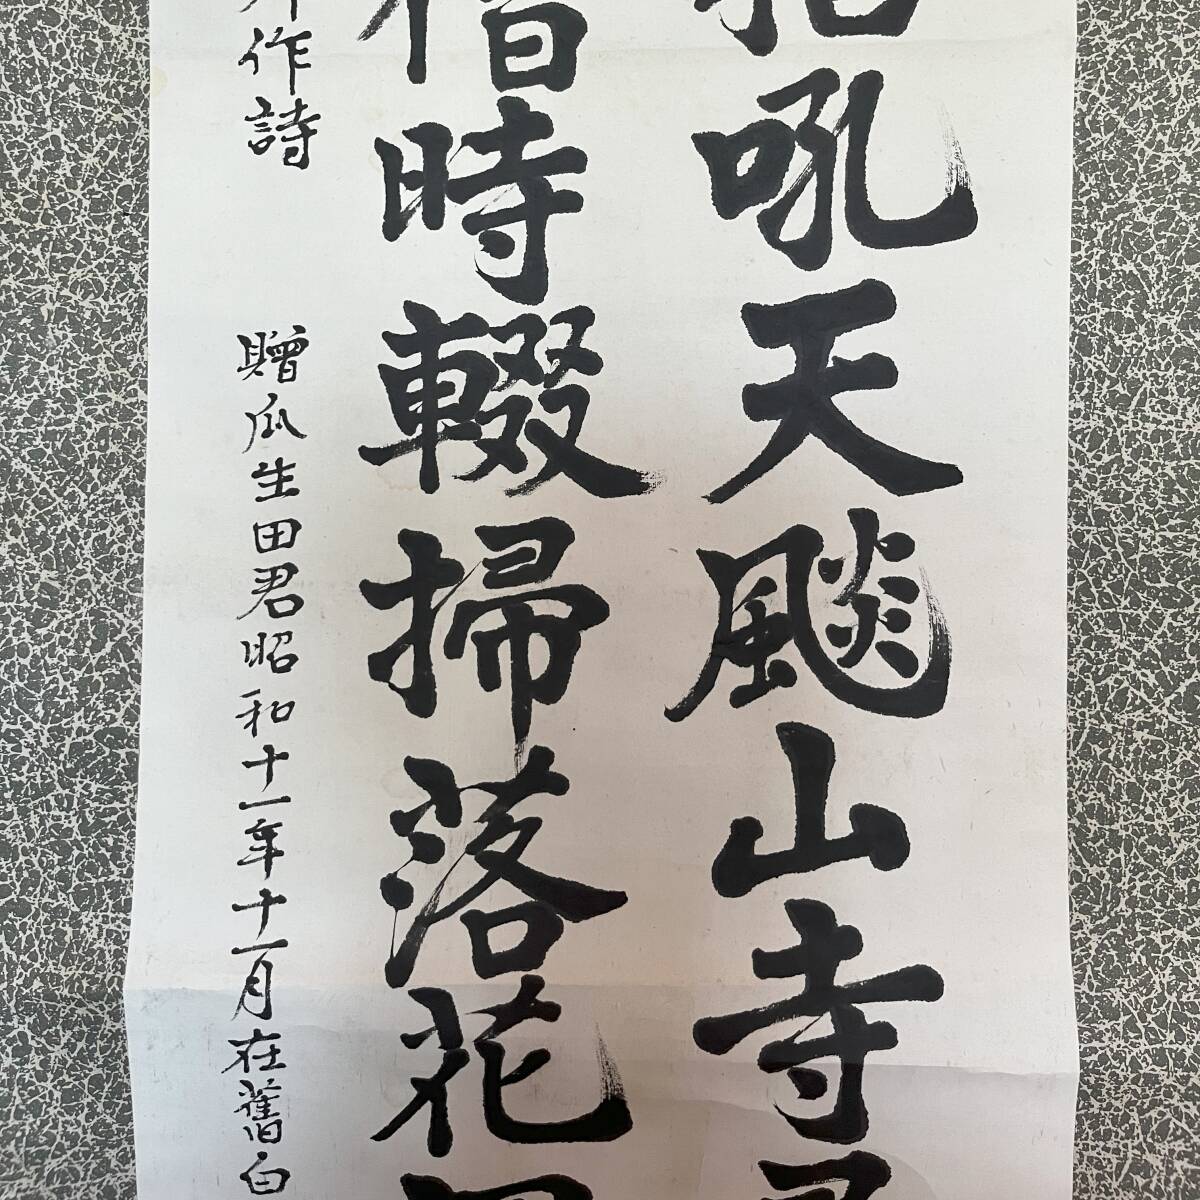 吼天颷山寺
時輟掃落花
作詩 贈瓜生田君昭和十一年十一月在舊白